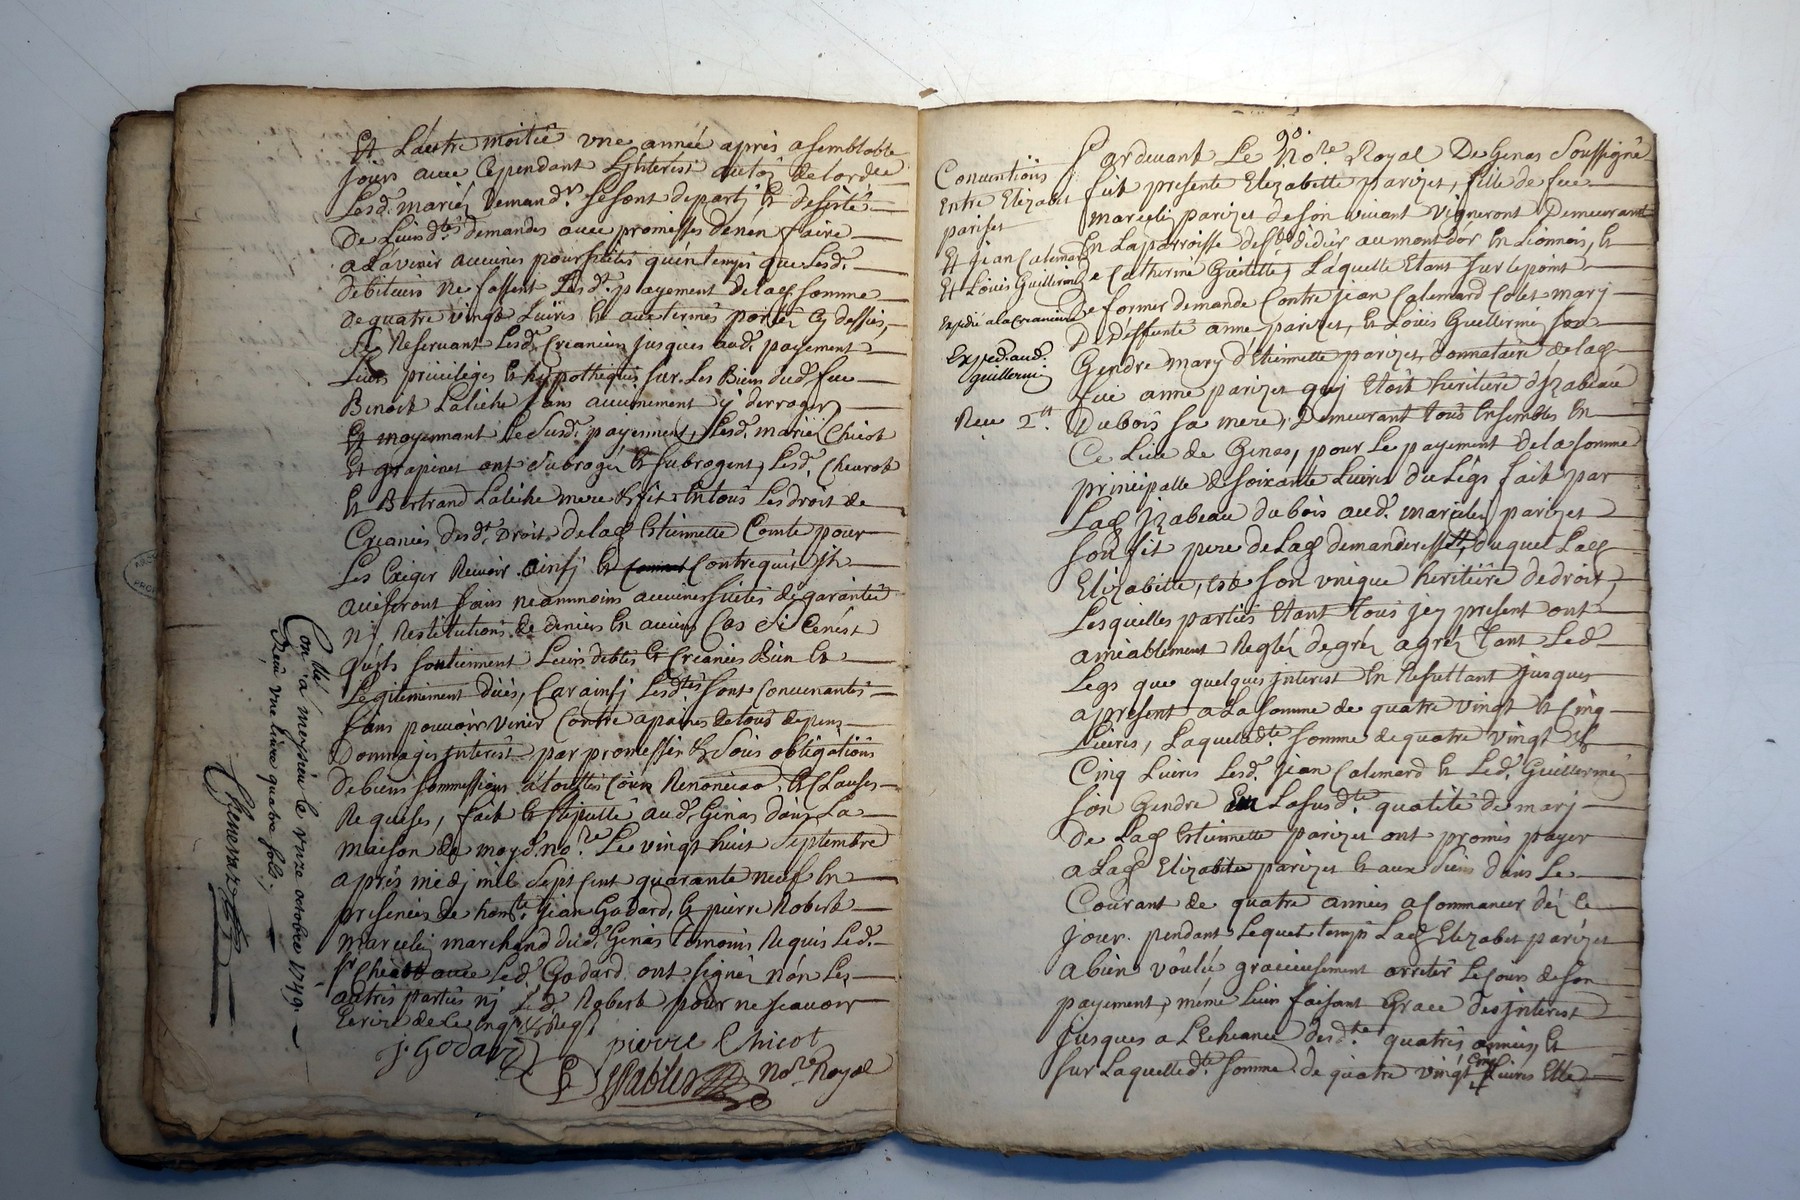 Et Lautre moitié une année après a semblable
jour avec Cependant Lynterest au taux de lord.ce
Lesd. mariez demand.rs se sont departj et desisté
De Leurs d.tes demandes avec promesses de nen faire
a Ladvenir aucunes poursuites quen temps que Lesd.
debiteurs ne fassent Lesd. payement de lad. somme
de quatre vingt Livres et aux termes portés Cy dessus,
Se Reservant Lesd. Creanciers jusques aud. payement
Leurs privileges et hypotheques sur Les Biens dud. feu
Benoit Laliche sans aucunement y derroger
Et moyennant Le susd. payement, Lesd. mariez Chicot
Et grapinet ont subrogéz et subrogent, Lesd. Cheurot
Et Bertrand Laliche mere et fils En tous Les droit de
Creances desd.t Droit de lad. Estiennette Comte pour
Les Exiger Recevoir ainsj et Contre qui Jls
aviseront sans neanmoins aucunes suites de garantie
nj Restitutions de deniers En aucun Cas si Cenest
quels soutiennent Leurs debtes et Creances Bien et
Legitimement dües, Car ainsj Lesd.tes sont Convenantes
sans pouvoir venir Contre a paines de tous depens
Dommages jnterest par promesses et sous obligations
De biens sommessions a toutes Cours Renonciaõ. et Clauses
Requises, fait et stipullé aud. Ginas dans La
maison de moyd. no.re Le vingt huit Septembre
après midj mil Sept Cent quarante neuf En
presences de hon.te jean Godard, et pierre Robert
Marcelin marchand dud. Genas temoins Requis Led.
s.r Chicot avec Led. Godard ont signéz non Les
autres parties nj Led. Robert pour ne scavoir
Ecrire de Ce Enquis et Reqs.
J. Godard pierre Chicot
No.re Royal
Con.llé a meysieu le onze octobre 1749.
Reçu une livre quatre sols.
90.
Conventions
Entre Elizabet
pariset
Et jean Calemard
Et Loüis Guillermin
Expedié a la Creanciere
Exped. aud.
guillermin
Receu 2.lt
Pardevant Le No.re Royal De Genas Soussigné
fut presente Elizabette parizet, fille de feu
marcelin parizet de son vivant vigneront Demeurant
En La parroisse de S.t didier au mont d'or En Lionnois, et
de Catherine Guilette, Laquelle Etant sur le point
de former demande Contre jean Calemard Colet mary
De Deffunte anne parizet, et Loüis Guellermin son
Gendre mary d'Etiennette parizet, donnataire de lad.
feüe anne parizet quj Etoit heritiere d'Jzabeau
Dubois sa mere, Demeurant tous Ensembles En
Ce Lieu de Ginas, pour Le payement de la somme
principalle de soixante Livres du Légs fait par
Lad. Jzabeau dubois aud. marcelin parizet
son fils pere de Lad. demanderesse, duquel Lad.
Elizabette, est son unique heritiere de droit,
Lesquelles parties Etant tous jcy present ont
amiablement Reglez de gréz agréz tant Led.
Legs que quelques jnterest En Resultant jusques
a present a La somme de quatre vingt et Cinq
Livres, Laquelled.te somme de quatre vingt et
Cinq Livres Lesd. jean Calemard et Led. Guillermin
son Gendre En La susd.te qualité de mary
De Lad. Estiennette parizet ont promis payer
a Lad. Elizabette parizet et aux siens dans Le
Courant de quatre années a Commancer déz Ce
jour. pendant Lequel temps Lad. Elizabet parizet
a bien voulu gracieusement arreter Le Cours de son
payement, méme Leur faisant Grace des jnterest
jusques a L'Echeance desd.te quatres années et
sur Laquelled.te somme de quatre vingt Cinq Livres Elle